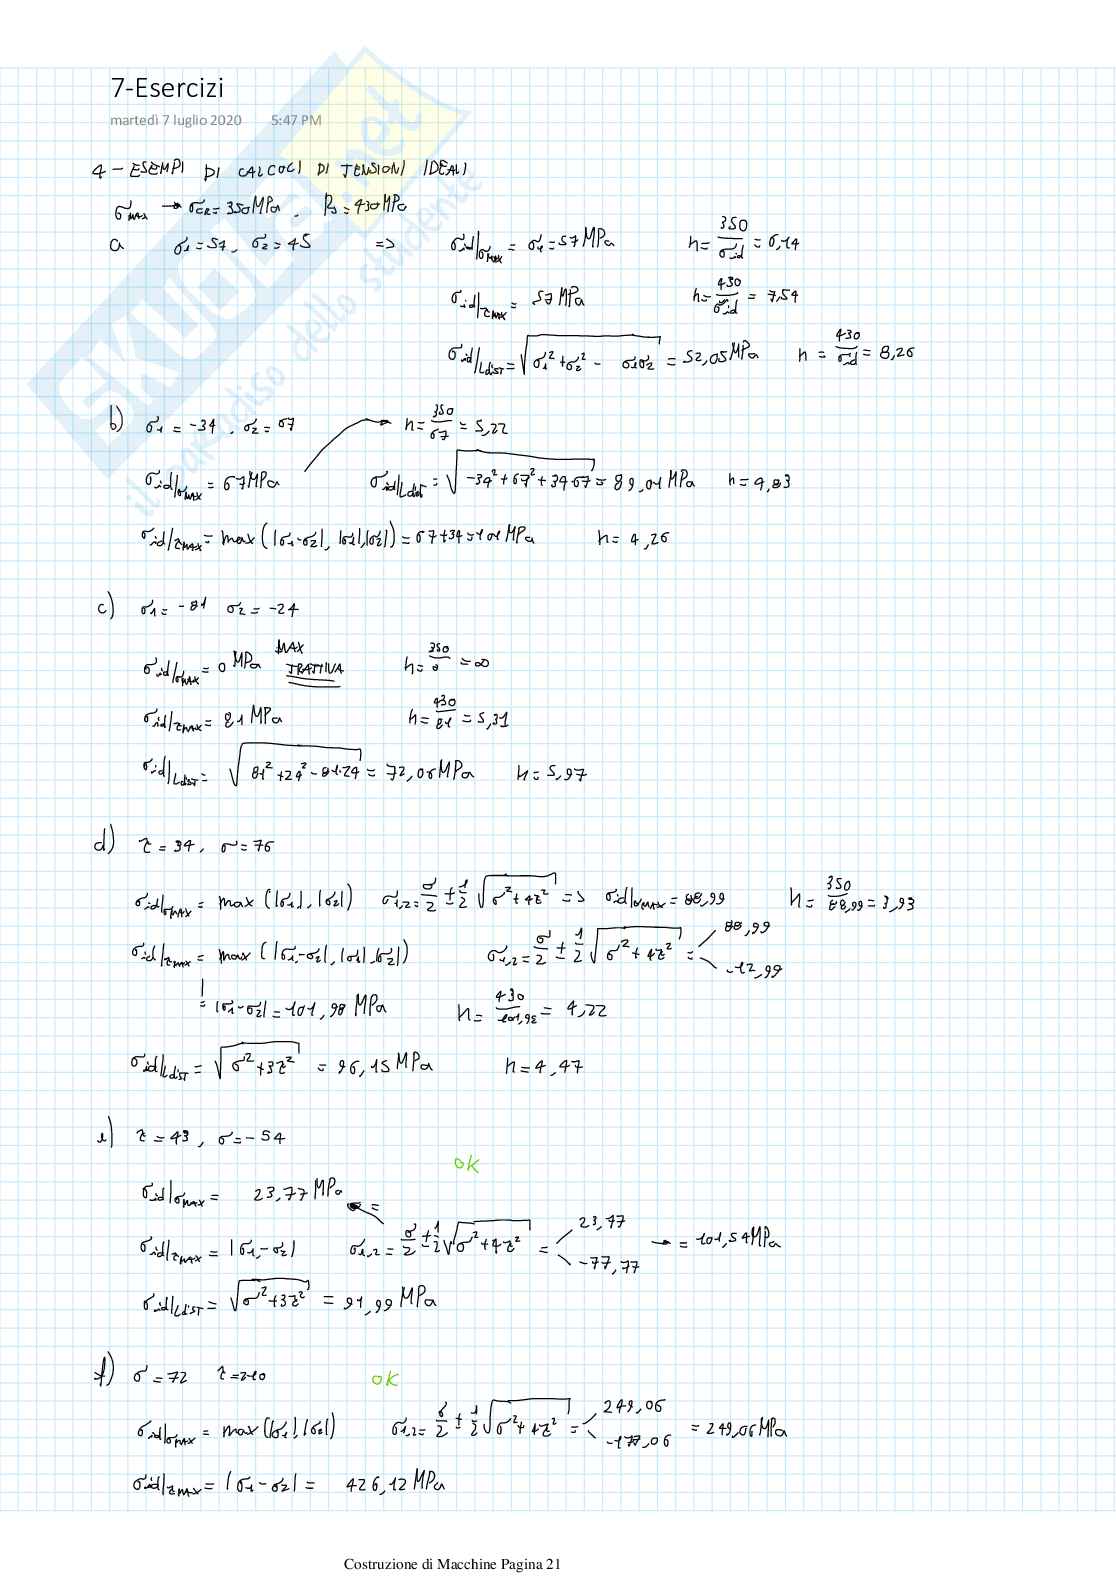 7-Esercizi
martedì 7 luglio 2020 5:47 PM
4 - ESEMPI DI CALCOLI DI TENSIONI IDEALI
σMAX → σCR = 350 MPa , Rs = 430 MPa
a σ1 = 57 , σ2 = 45 => σid|σMAX = σ1 = 57 MPa n = 350/σid = 6,14
σid|τMAX = 57 MPa n = 430/σid = 7,54
σid|LdisT = √(σ1² + σ2² - σ1σ2) = 52,05 MPa n = 430/σid = 8,26
b) σ1 = -34 , σ2 = 67 n = 350/67 = 5,22
σid|σMAX = 67 MPa σid|Ldist = √(-34² + 67² + 34·67) = 89,01 MPa n = 4,83
σid|τMAX = max (|σ1-σ2|, |σ1|,|σ2|) = 67+34 = 101 MPa n = 4,26
c) σ1 = -81 σ2 = -24
σid|σMAX = 0 MPa MAX TRATTIVA n = 350/0 = ∞
σid|τMAX = 81 MPa n = 430/81 = 5,31
σid|LdisT = √(81² + 24² - 81·24) = 72,06 MPa n = 5,97
d) τ = 34 , σ = 76
σid|σMAX = max (|σ1|, |σ2|) σ1,2 = σ/2 ± 1/2 √(σ² + 4τ²) => σid|σMAX = 88,99 n = 350/88,99 = 3,93
σid|τMAX = max (|σ1-σ2|, |σ1|,|σ2|) σ1,2 = σ/2 ± 1/2 √(σ² + 4τ²) = 88,99 -12,99
= |σ1-σ2| = 101,98 MPa n = 430/101,98 = 4,22
σid|LdisT = √(σ² + 3τ²) = 96,15 MPa n = 4,47
e) τ = 43 , σ = -54
ok
σid|σMAX = 23,77 MPa =
σid|τMAX = |σ1-σ2| σ1,2 = σ/2 ± 1/2 √(σ² + 4τ²) = 23,77 -77,77 → = 101,54 MPa
σid|LdisT = √(σ² + 3τ²) = 91,99 MPa
f) σ = 72 τ = 210 ok
σid|σMAX = max (|σ1|,|σ2|) σ1,2 = σ/2 ± 1/2 √(σ² + 4τ²) = 249,06 -177,06 = 249,06 MPa
σid|τMAX = |σ1-σ2| = 426,12 MPa
Costruzione di Macchine Pagina 21
SKUOLA.net
il paradiso dello studente